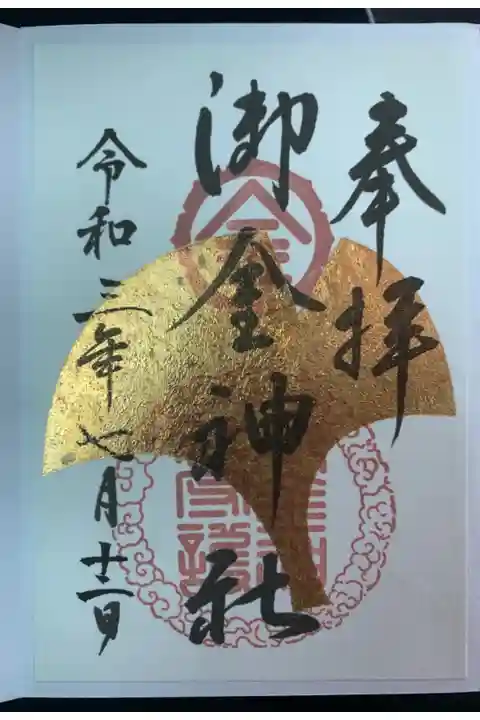 奉拝
御金神社
令和三年七月十二日